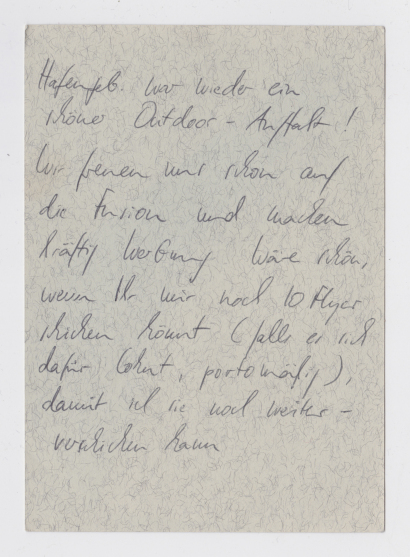 Hafengeb. war wieder ein
schöner Outdoor - Auftakt!
Wir freuen uns schon auf
die Fusion und machen
kräftig Werbung. Wäre schön,
wenn Ihr mir noch 10 Flyer
schicken könnt (falls es sich
dafür lohnt, portomäßig),
damit ich sie noch weiter-
verschicken kann